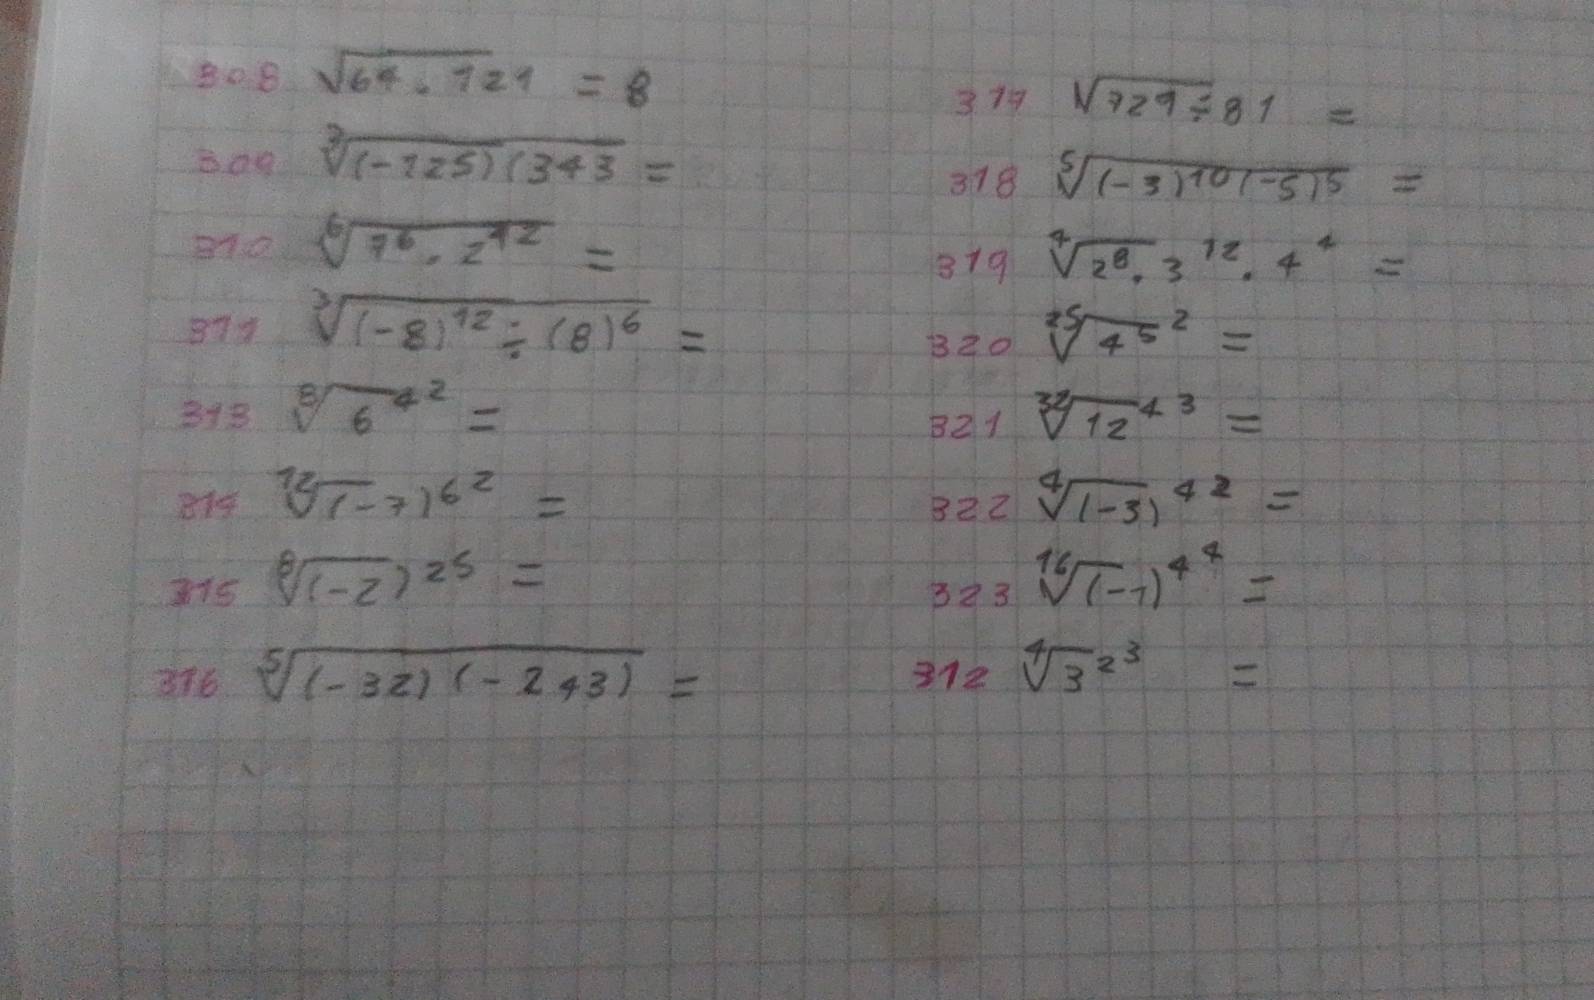 308 √64.121 = 8
309 ³√(-125)(343 =
310 ⁶√7⁶.2¹² =
311 ³√(-8)¹² ÷ (8)⁶ =
313 ⁸√6⁴ ² =
314 ¹²√(-7)⁶ ² =
315 ⁸√(-2)²⁵ =
316 ⁵√(-32)(-243) =
317 √729÷81 =
318 ⁵√(-3)¹⁰(-5)⁵ =
319 ⁴√2⁸.3¹².4⁴ =
320 ²⁵√4⁵ ² =
321 ³²√12⁴ ³ =
322 ⁴√(-3)⁴ ² =
323 ¹⁶√(-1)⁴ ⁴ =
312 ⁴√3² ³ =